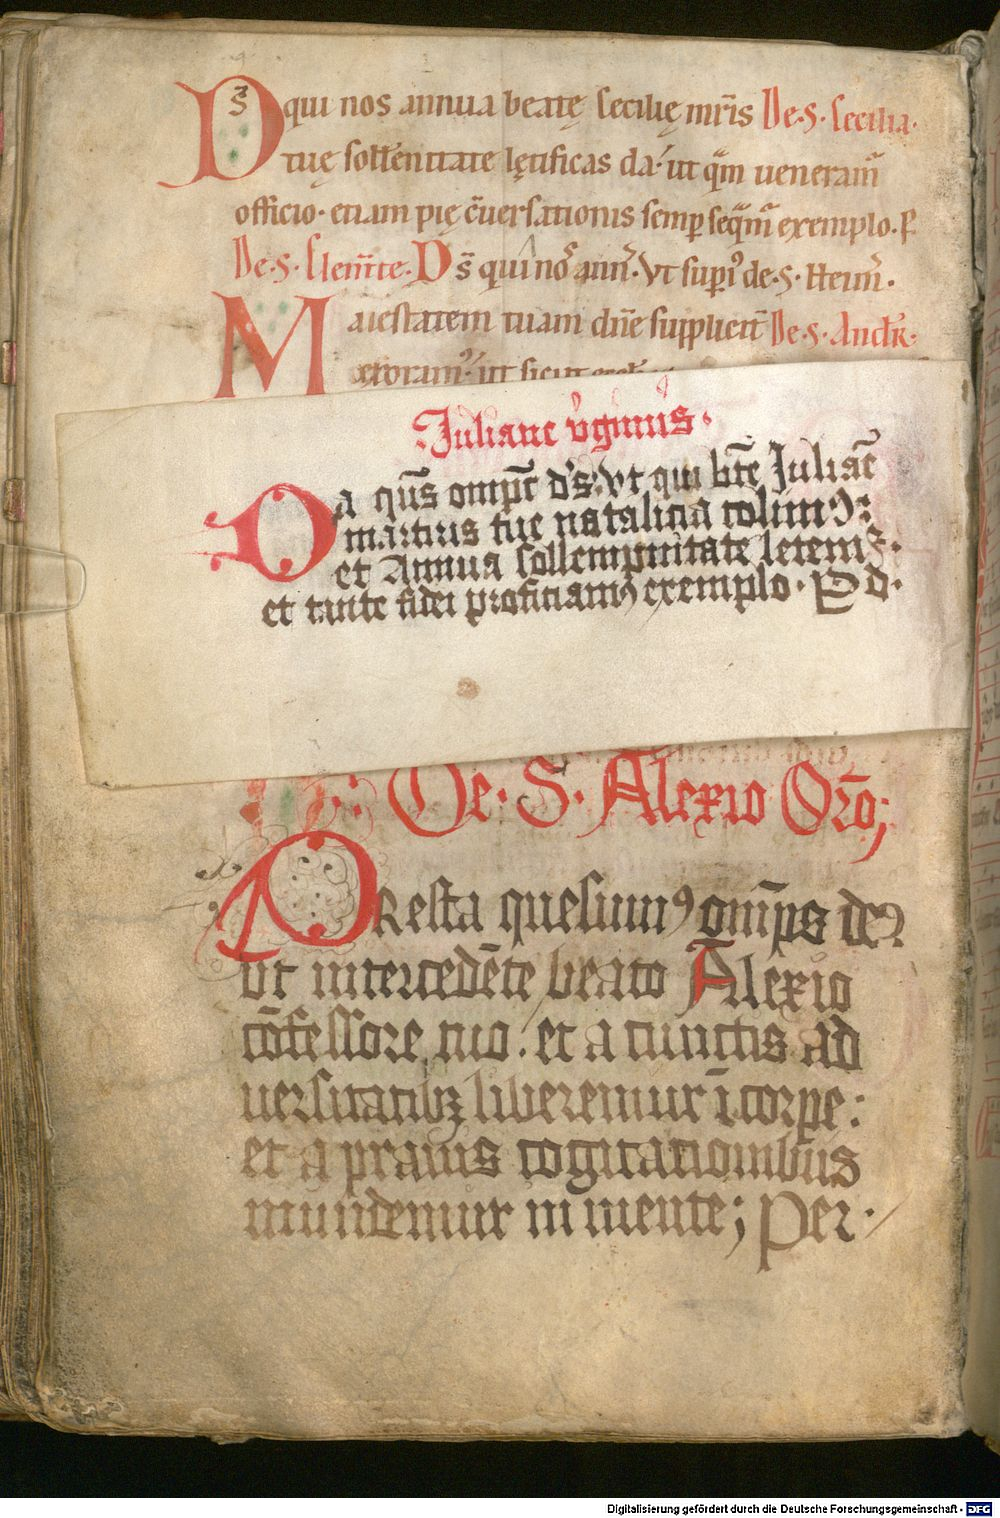 Ds̄ qui nos annua beatę Cecilię mr̄is De·S·Cecilia·
tuę sollēnitate lętificas da· ut qm̄ ueneramr̄
officio· etiam pię c̄uersationis semp seq̄m̄r exemplo. P
De·S·Clem̄te· Ds̄ qui nos ann̄· Vt supͥ de·S·
Maiestatem tuam dn̄e supplicit̄ De·S·Andr̄·
exoramꝰ· ut sicut
Juliane v̄ginis·
Da qūs omp̄t d's· vt qui bt̄e Juliāe
martiris tue natalicia colimꝰ:
et Annua sollempnitate letemꝰ·
et tante fidei proficiamꝰ exemplo· P d·
De·S·Alexio Oro͞;
PResta quesumꝰ omīps deꝰ
vt intercedēte beato Alexio
cōfessore tuo· et a cunctis ad
uersitatibꝫ liberemur ī corpe:
et a prauis cogitationibus
mundemur in mente; Per·
Digitalisierung gefördert durch die Deutsche Forschungsgemeinschaft - DFG